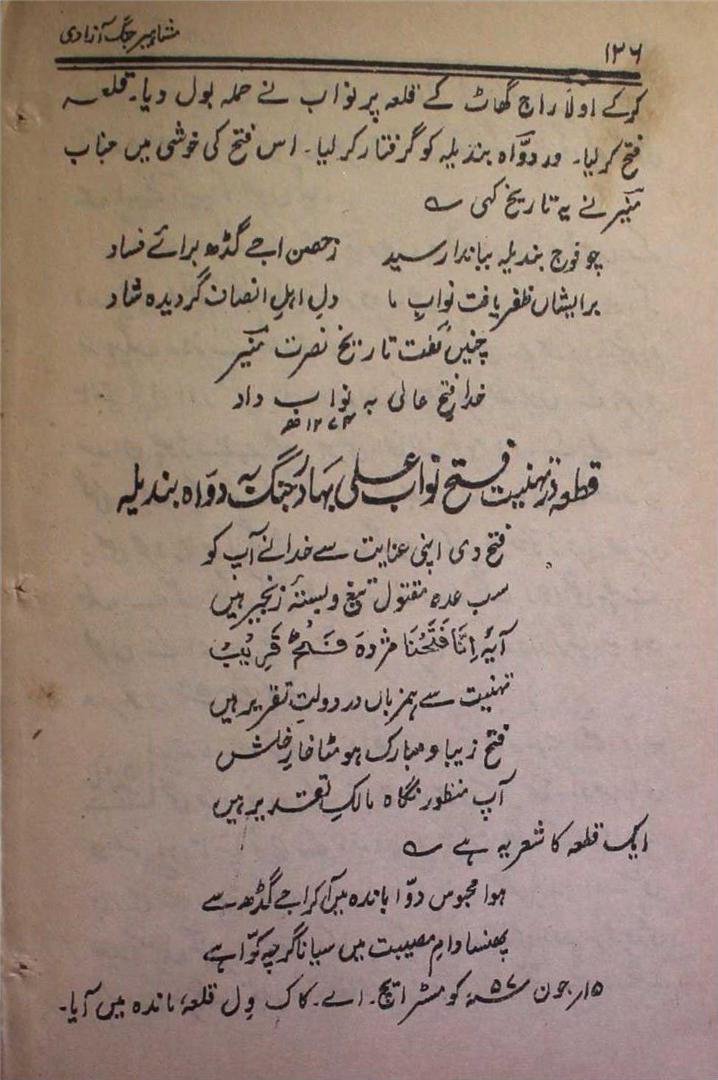 مشاہیر جنگ آزادی
۱۲۶
کرکے اولاً راج گھاٹ کے قلعہ پر نواب نے حملہ بول دیا۔ قلعہ
فتح کرلیا۔ ور دوّاہ بندیلہ کو گرفتار کرلیا۔ اس فتح کی خوشی میں جناب
منیر نے یہ تاریخ کہی ؎
چو فوج بندیلہ بباندا رسید زحصن اجے گڈھ برائے فساد
برایشاں ظفر یافت نوابِ ما دلِ اہلِ انصاف گردیدہ شاد
چنیں گفت تاریخ نصرت منیر
خدا فتح عالی بہ نواب داد
۱۲۷۴ھ
قطعہ در تہنیت فتح نواب علی بہادر جنگ بہ دوّاہ بندیلہ
فتح دی اپنی عنایت سے خدا نے آپ کو
سب عدو مقتول تیغ و بستۂ زنجیر ہیں
آیۂ اِنَّا فَتَحْنَا مژدہ فَتْحٌ قَرِیْبٌ
تہنیت سے ہمزباں در دولتِ تقریر ہیں
فتح زیبا و مبارک ہو مٹا خارِ خلش
آپ منظور نگاہ مالکِ تقدیر ہیں
ایک قطعہ کا شعر یہ ہے ؎
ہوا محبوس دوّا باندہ میں آکر اجے گڈھ سے
پھنسا دامِ مصیبت میں سیانا گرچہ کوّا ہے
۱۵ر جون ۵۷ء کو مسٹر ایچ۔ اے۔ کاک وِل قلعۂ باندہ میں آیا۔